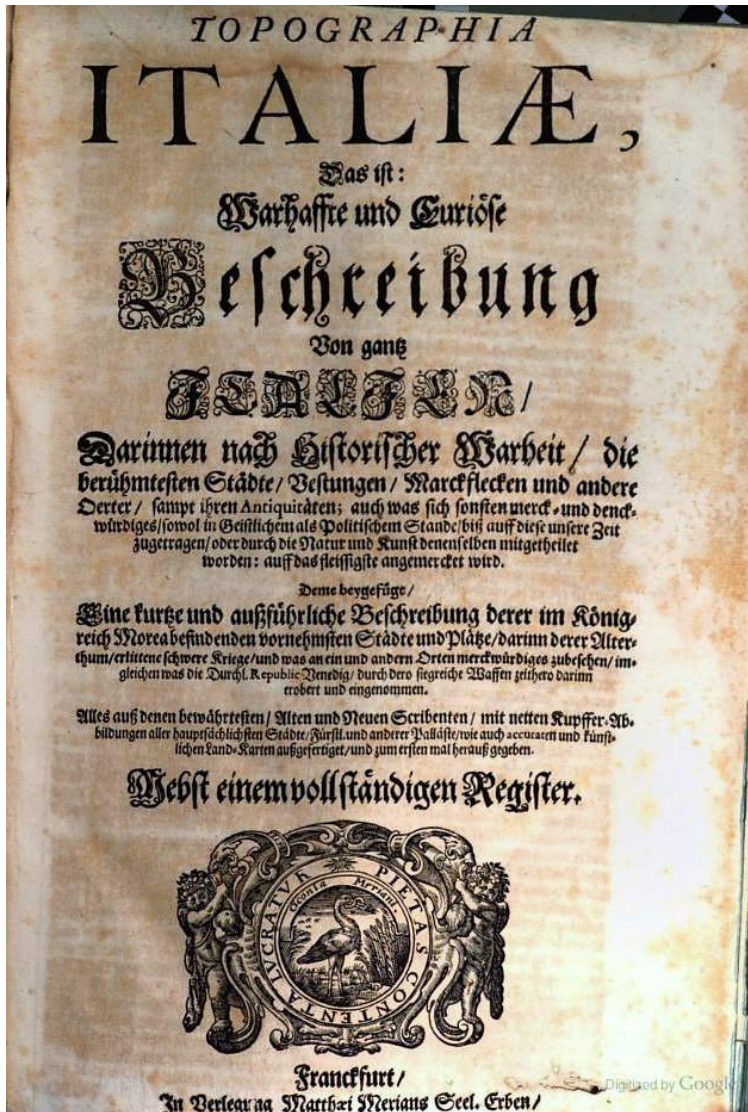 TOPOGRAPHIA
ITALIÆ,
Das ist:
Warhaffte und Curiöse
Beschreibung
Von gantz
ITALIEN/
Darinnen nach Historischer Warheit / die
berühmtesten Städte/ Vestungen/ Marckflecken und andere
Oerter/ sampt ihren Antiquitäten; auch was sich sonsten merck- und denck-
würdiges/sowol in Geistlichem als Politischem Stande/biß auff diese unsere Zeit
zugetragen/oder durch die Natur und Kunst denenselben mitgetheilet
worden: auff das fleissigste angemercket wird.
Deme beygefügt/
Eine kurtze und außführliche Beschreibung derer im König-
reich Morea befindenden vornehmsten Städte und Plätze/darinn derer Alter-
thum/erlittene schwere Kriege/und was an ein und andern Orten merckwürdiges zubesehen/im-
gleichen was die Durchl. Republic Venedig/durch dero siegreiche Waffen zeithero darinn
erobert und eingenommen.
Alles auß denen bewährtesten/ Alten und Neuen Scribenten/ mit netten Kupffer-Ab-
bildungen aller hauptsächlichsten Städte/Fürstl. und anderer Palläste/wie auch accuraten und künst-
lichen Land-Karten außgefertiget/und zum ersten mal herauß gegeben.
Nebst einem vollständigen Register.
PIETAS CONTENTA LUCRATUR
Ciconia Meriani.
Franckfurt/
In Verlegung Matthæi Merians Seel. Erben/
Digitized by Google